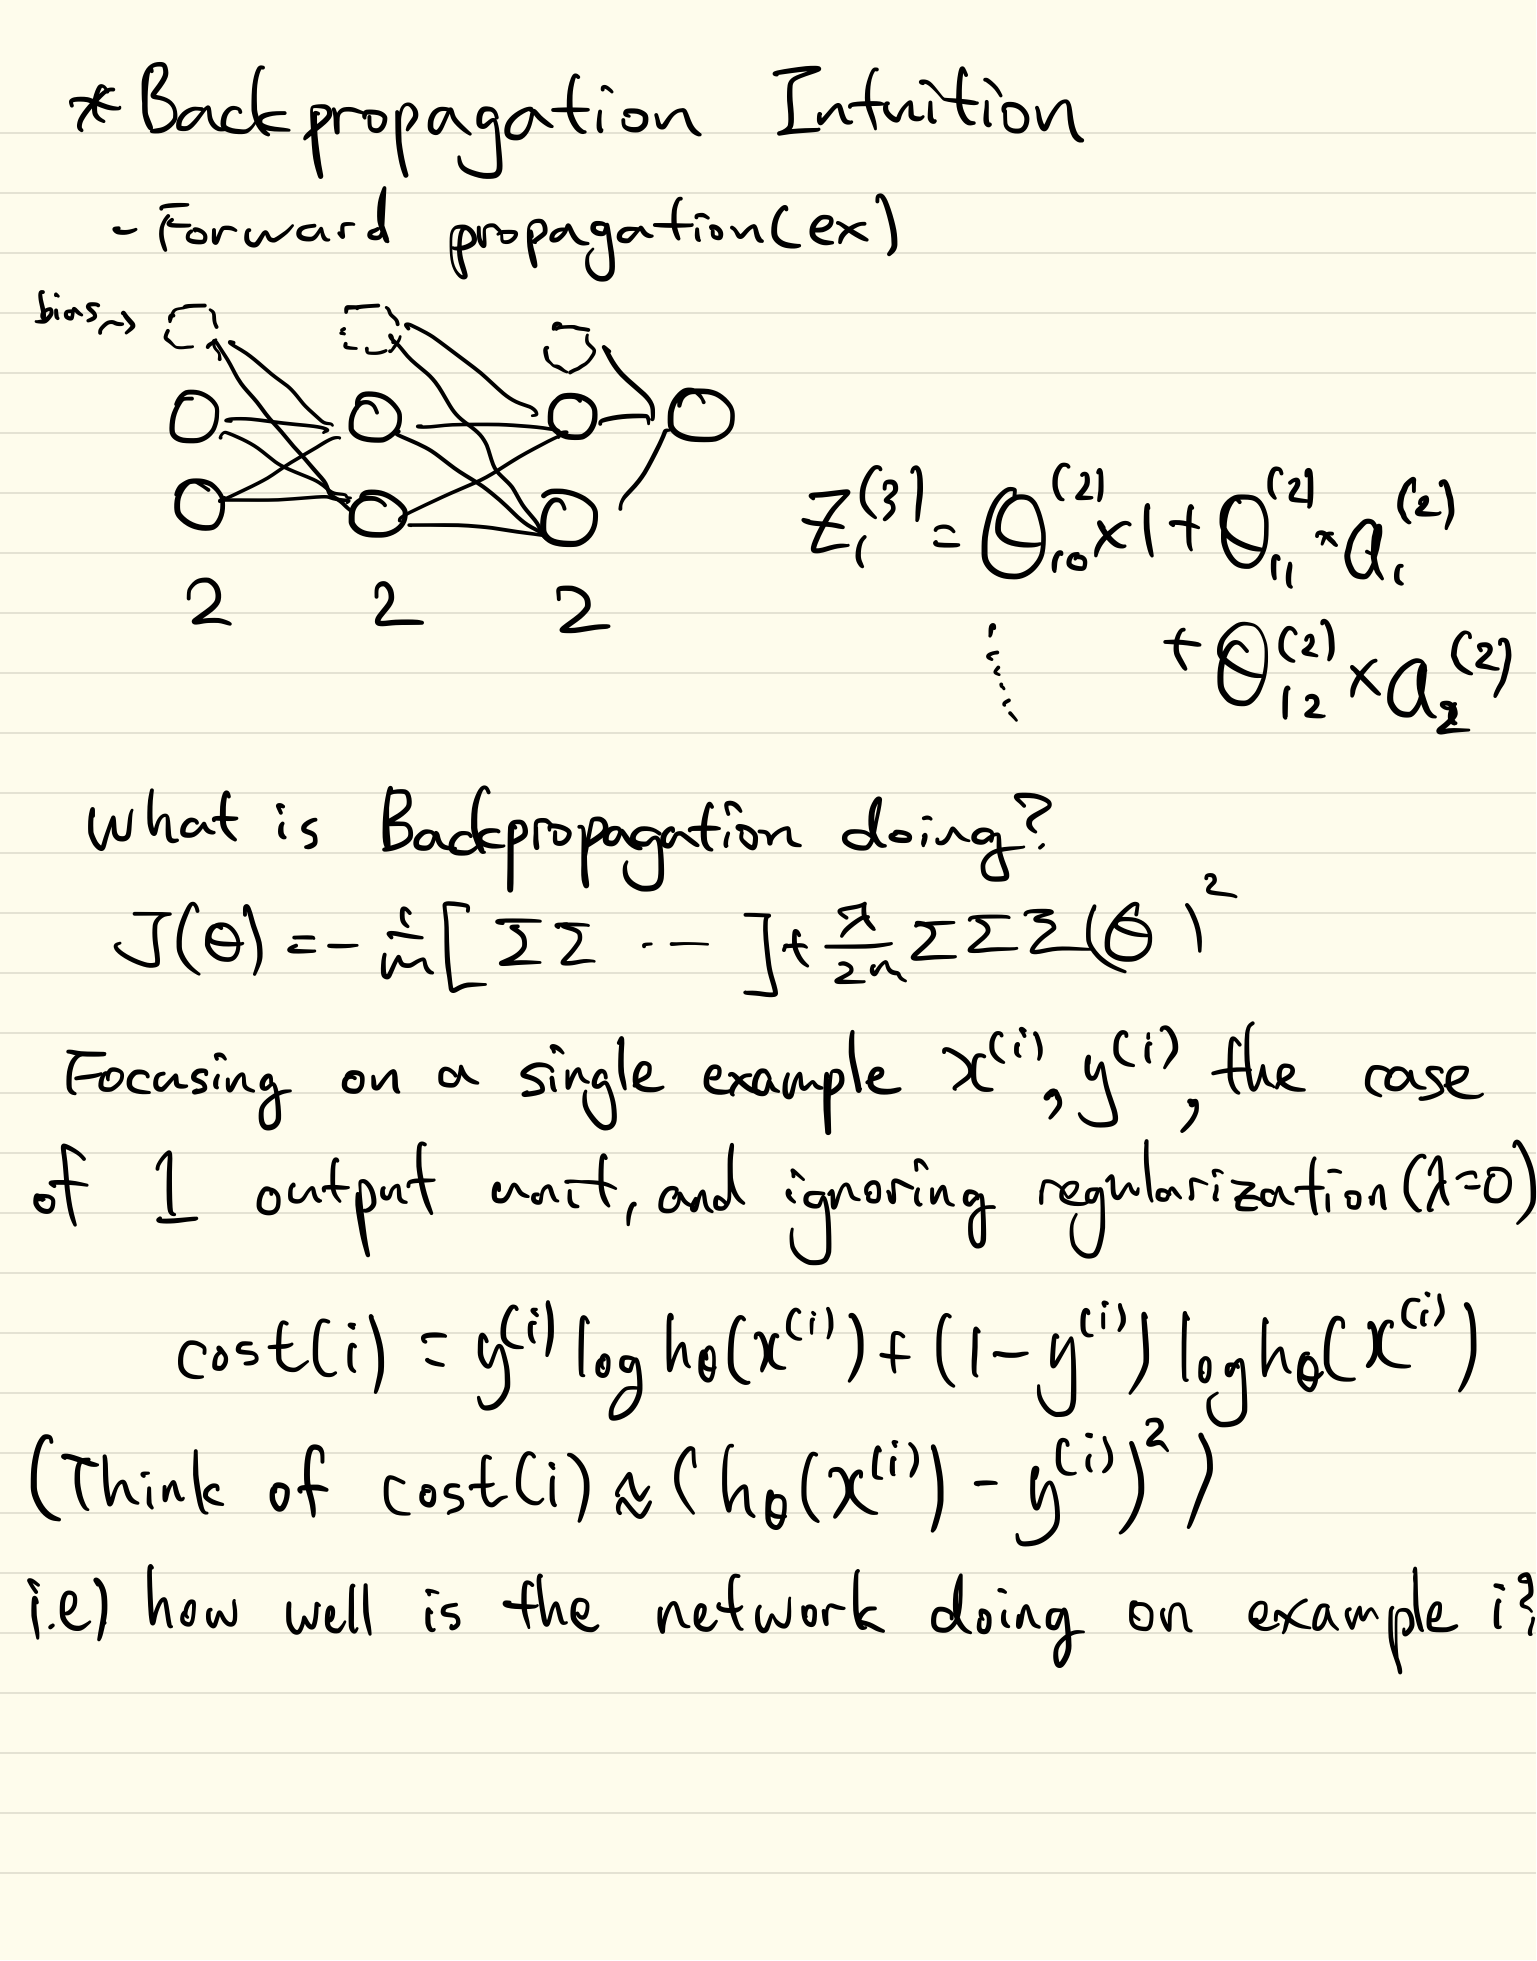 * Backpropagation Intuition
- Forward propagation (ex)
bias
2 2 2
Z₁⁽³⁾ = Θ₁₀⁽²⁾ × 1 + Θ₁₁⁽²⁾ × a₁⁽²⁾
+ Θ₁₂⁽²⁾ × a₂⁽²⁾
What is Backpropagation doing?
J(Θ) = - 1/m [ΣΣ ...] + λ/2m ΣΣΣ(Θ)²
Focusing on a single example x⁽ⁱ⁾, y⁽ⁱ⁾, the case
of 1 output unit, and ignoring regularization (λ=0)
cost(i) = y⁽ⁱ⁾ log hθ(x⁽ⁱ⁾) + (1 - y⁽ⁱ⁾) log hθ(x⁽ⁱ⁾)
(Think of cost(i) ≈ (hθ(x⁽ⁱ⁾) - y⁽ⁱ⁾)²)
i.e) how well is the network doing on example i?